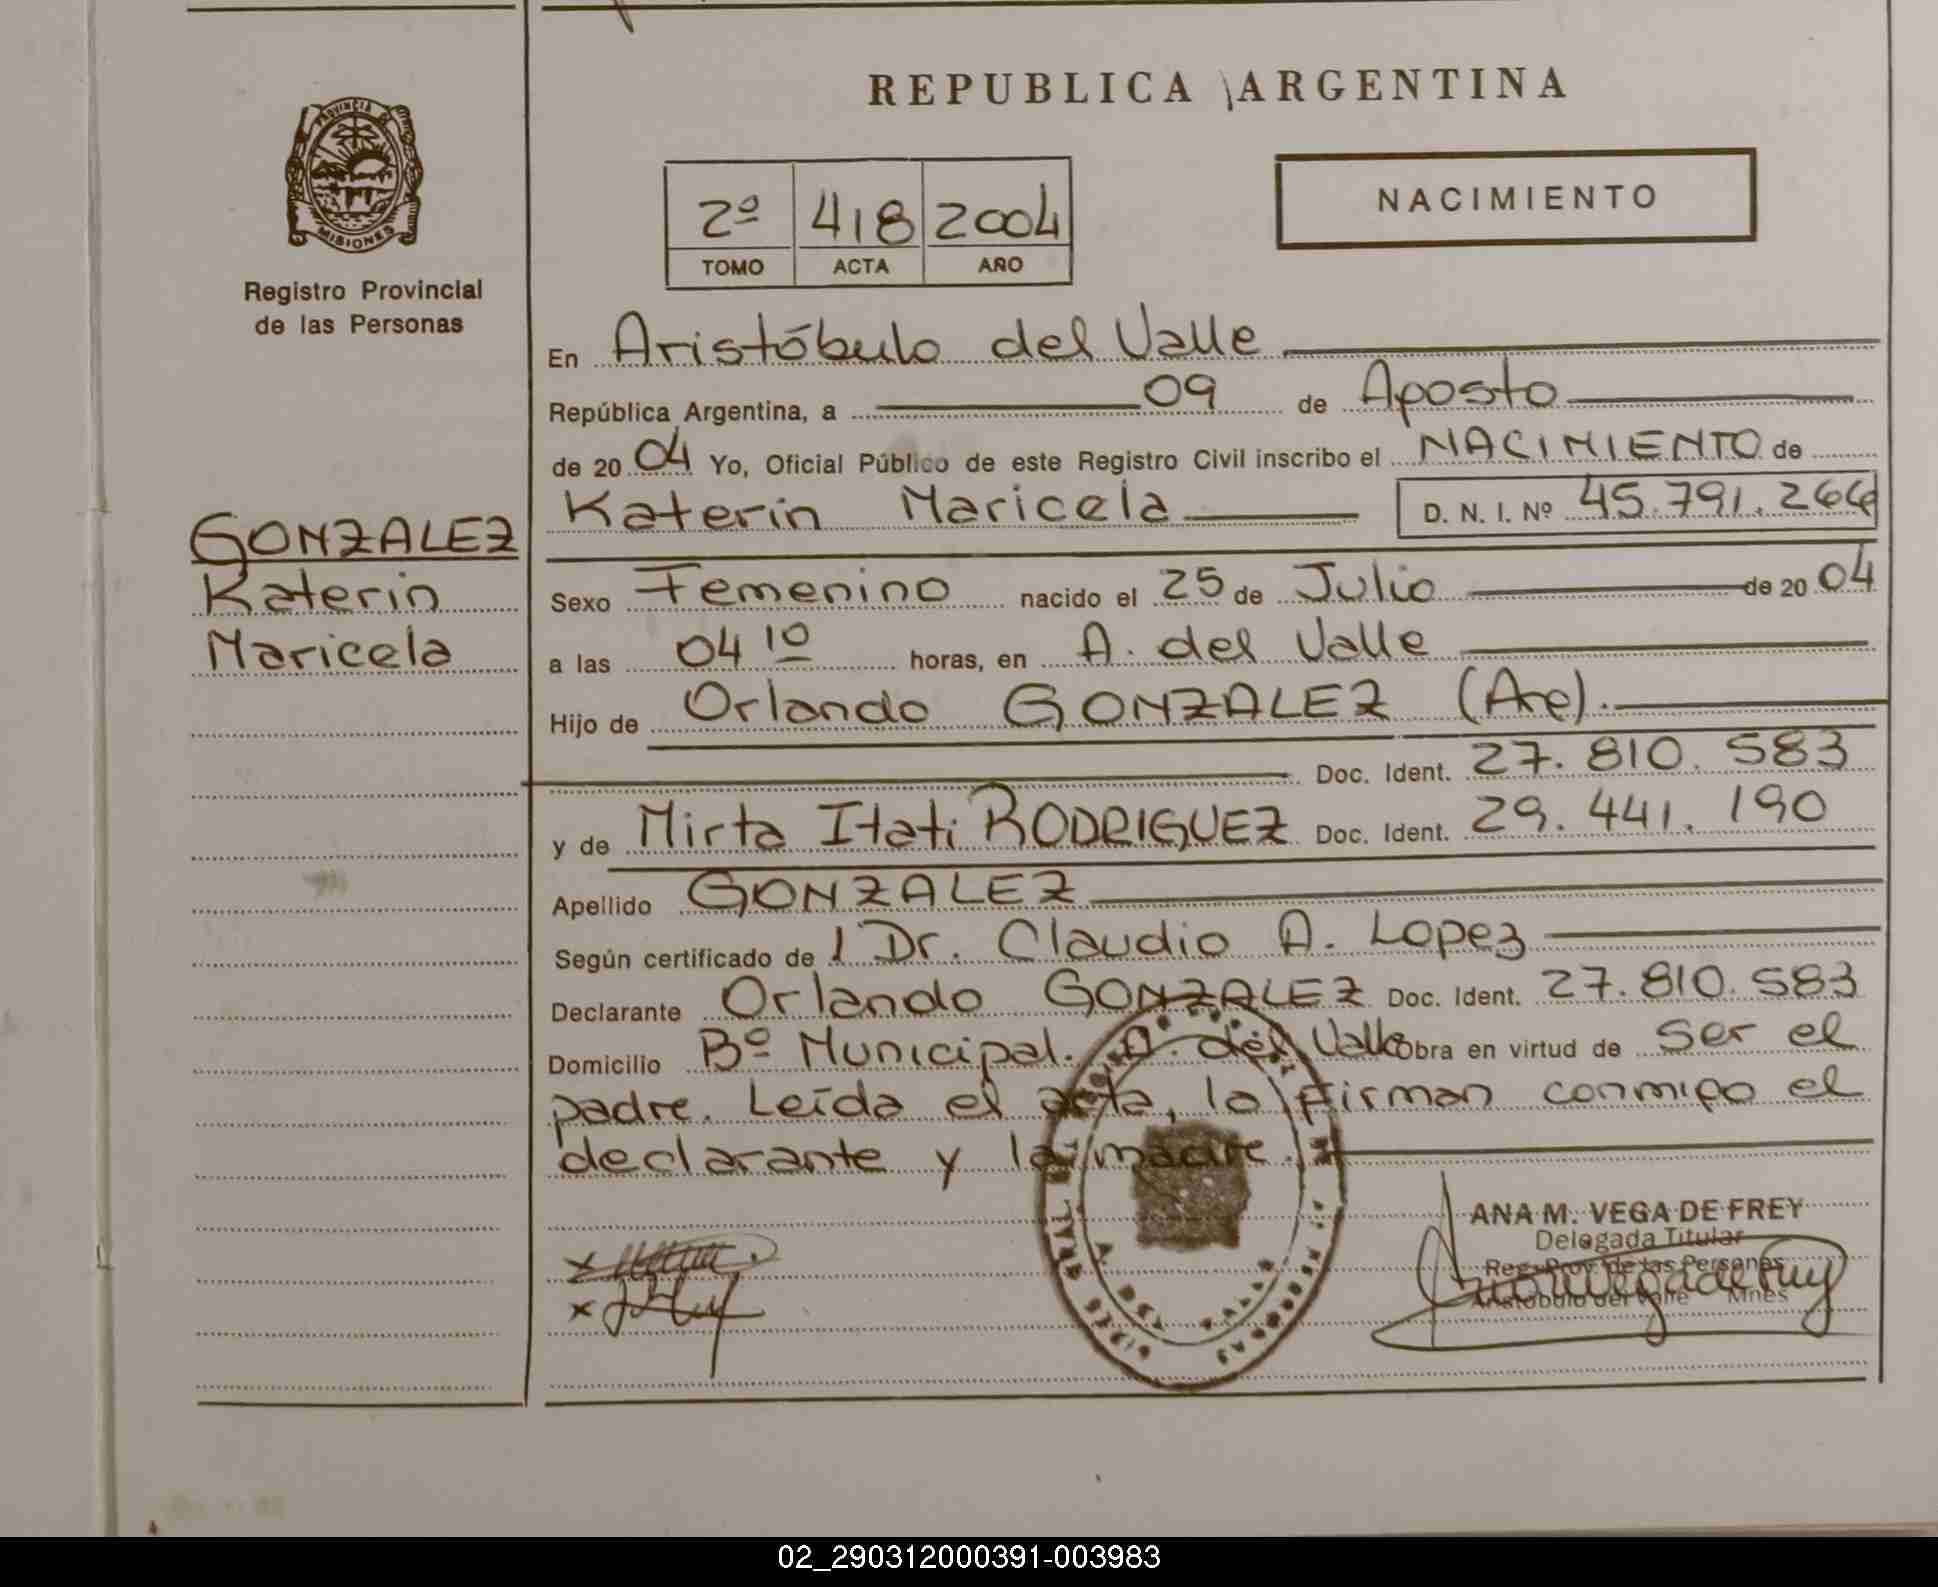 REPUBLICA ARGENTINA
PROVINCIA DE
MISIONES
Registro Provincial
de las Personas
2º 418 2004
TOMO ACTA AÑO
NACIMIENTO
En Aristóbulo del Valle
República Argentina, a 09 de Agosto
de 2004 Yo, Oficial Público de este Registro Civil inscribo el NACIMIENTO de
Katerin Maricela D. N. I. Nº 45.791.266
GONZALEZ
Katerin
Maricela
Sexo Femenino nacido el 25 de Julio de 2004
a las 04 10 horas, en A. del Valle
Hijo de Orlando GONZALEZ (Arg).
Doc. Ident. 27.810.583
y de Mirta Itati RODRIGUEZ Doc. Ident. 29.441.190
Apellido GONZALEZ
Según certificado de l Dr. Claudio A. Lopez
Declarante Orlando GONZALEZ Doc. Ident. 27.810.583
Domicilio Bº Municipal. A. del Valle Obra en virtud de ser el
padre. Leída el acta, la firman conmigo el
declarante y la madre.
ANA M. VEGA DE FREY
Delegada Titular
Reg. Prov. de las Personas
Aristóbulo del Valle Mnes
02_290312000391-003983